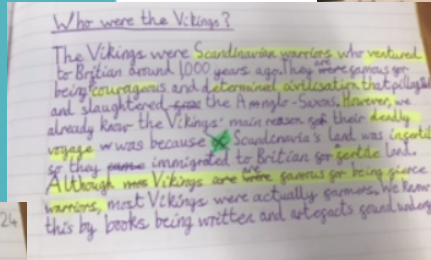 Who were the Vikings?
The Vikings were Scandinavian warriors who ventured
to Britian around 1,000 years ago. They are were famous for
being courageous and determined civilisation that pillaged
and slaughtered the Anglo-Saxons. However, we
already know the Vikings' main reason for their deadly
voyage was because Scandenavia's land was infertile
so they came immigrated to Britian for fertile land.
Although mos Vikings are were famous for being fierce
warriors, most Vikings were actually farmers. We know
this by books being written and artefacts found underg
24